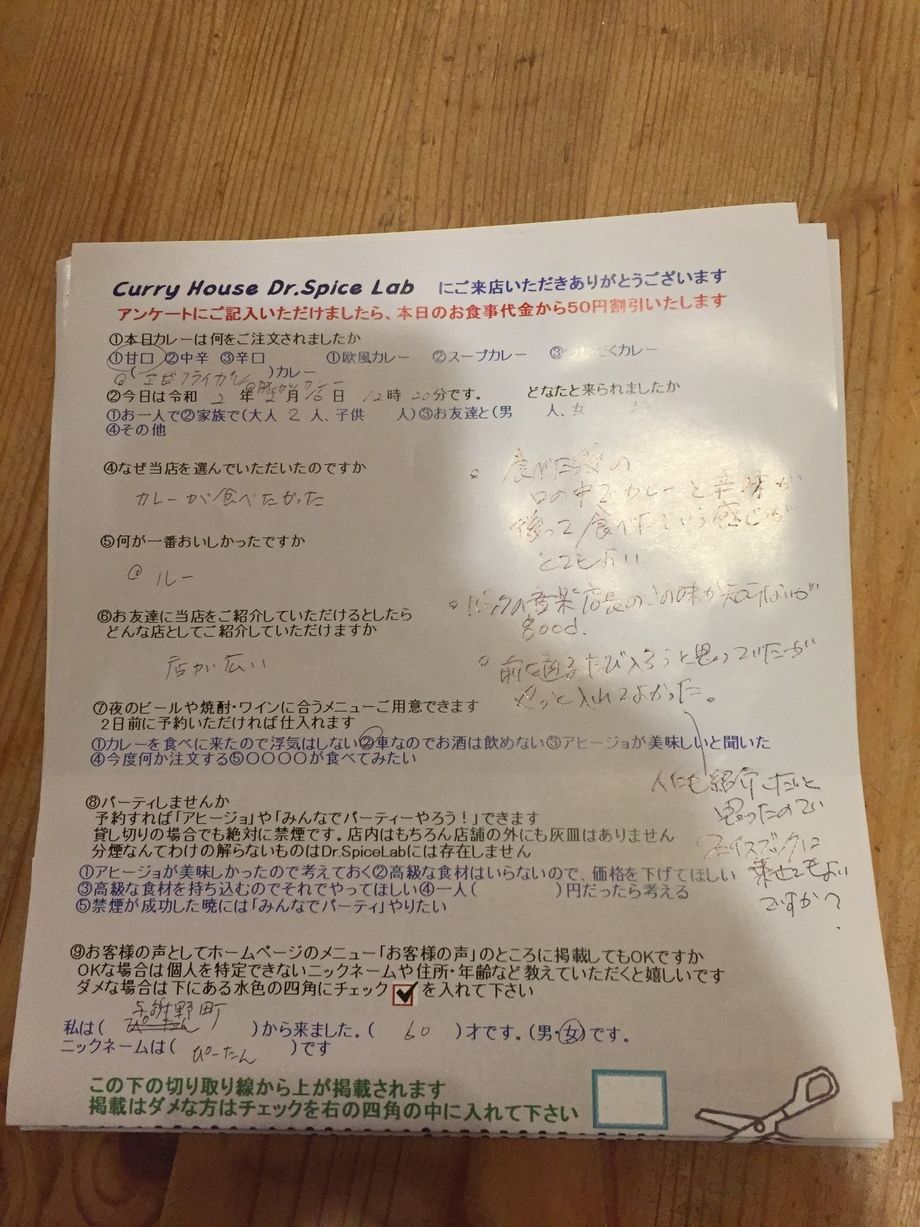 Curry House Dr.Spice Lab にご来店いただきありがとうございます
アンケートにご記入いただけましたら、本日のお食事代金から50円割引いたします
①本日カレーは何をご注文されましたか
①甘口 ②中辛 ③辛口 ①欧風カレー ②スープカレー ③ カレー
( エビフライカレー )カレー
②今日は令和 2 年 2 月 16 日 12 時 20 分です。 どなたと来られましたか
①お一人で②家族で(大人 2 人、子供 人)③お友達と(男 人、女
④その他
④なぜ当店を選んでいただいたのですか
カレーが食べたかった
⑤何が一番おいしかったですか
ルー
⑥お友達に当店をご紹介していただけるとしたら
どんな店としてご紹介していただけますか
店が広い
食べた後の
口の中でカレーと辛味が
残って食べたという感じが
とてもよい
バックの音楽店長の 味が が
good.
前を通るたび入ろうと思っていたが
やっと入れてよかった。
人にも紹介したいと
思ったので
フェイスブックに
乗せてもよい
ですか?
⑦夜のビールや焼酎・ワインに合うメニューご用意できます
2日前に予約いただければ仕入れます
①カレーを食べに来たので浮気はしない②車なのでお酒は飲めない③アヒージョが美味しいと聞いた
④今度何か注文する⑤〇〇〇〇が食べてみたい
⑧パーティしませんか
予約すれば「アヒージョ」や「みんなでパーティーやろう!」できます
貸し切りの場合でも絶対に禁煙です。店内はもちろん店舗の外にも灰皿はありません
分煙なんてわけの解らないものはDr.SpiceLabには存在しません
①アヒージョが美味しかったので考えておく②高級な食材はいらないので、価格を下げてほしい
③高級な食材を持ち込むのでそれでやってほしい④一人( )円だったら考える
⑤禁煙が成功した暁には「みんなでパーティ」やりたい
⑨お客様の声としてホームページのメニュー「お客様の声」のところに掲載してもOKですか
OKな場合は個人を特定できないニックネームや住所・年齢など教えていただくと嬉しいです
ダメな場合は下にある水色の四角にチェック を入れて下さい
私は( 野町 )から来ました。( 60 )才です。(男・女)です。
ニックネームは( ぴーたん )です
この下の切り取り線から上が掲載されます
掲載はダメな方はチェックを右の四角の中に入れて下さい